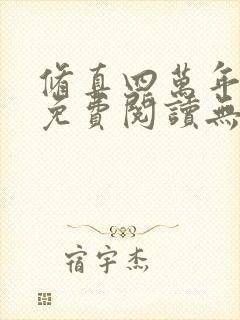 修真四萬年
免費閱讀無
宿宇杰